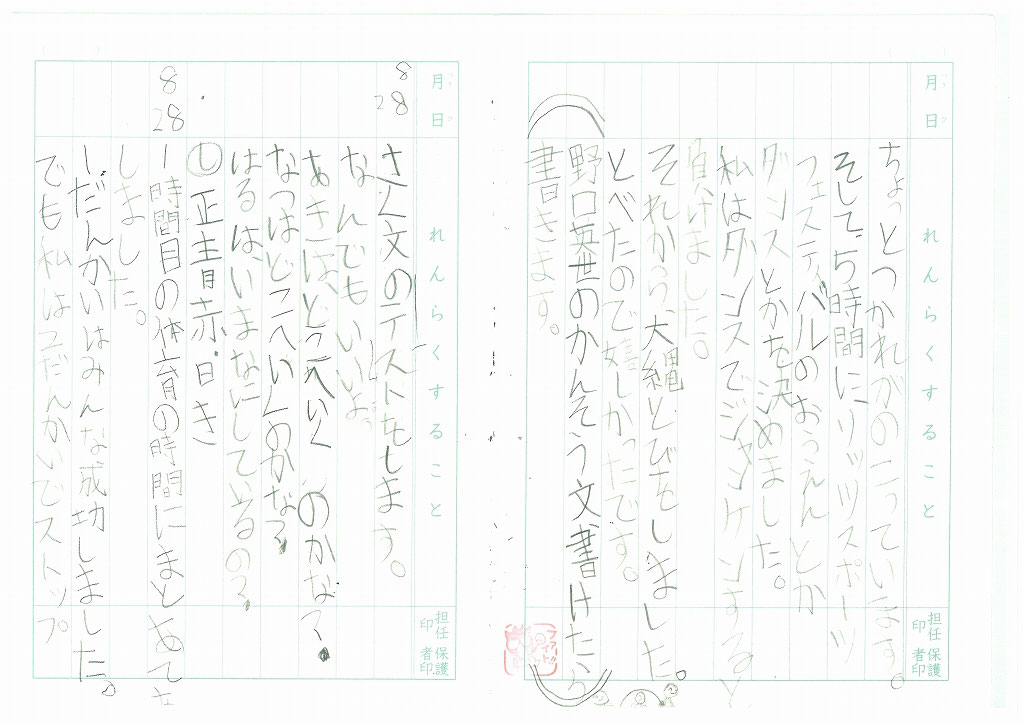 月日
れんらくすること
担任印
保護者印
ちょっとつかれがのこっています。
そして5時間にリッツスポーツ
フェスティバルのおうえんとか
ダンスとかを決めました。
私はダンスでジャンケンすると
負けました。
それから、大縄とびをしました。
とべたので嬉しかったです。
野口英世のかんそう文書けたら
書きます。
ファイト!!
月日
れんらくすること
担任印
保護者印
8
28
さく文のテストをします。
なんでもいいよ。
あきは、どこへいくのかな?
なつはどこへいくのかな?
はるは、いまなにしているの?
8
28
正青赤、日き
1時間目の体育の時間にまとあてを
しました。
1だんかいはみんな成功しました。
でも私は2だんかいでストップ